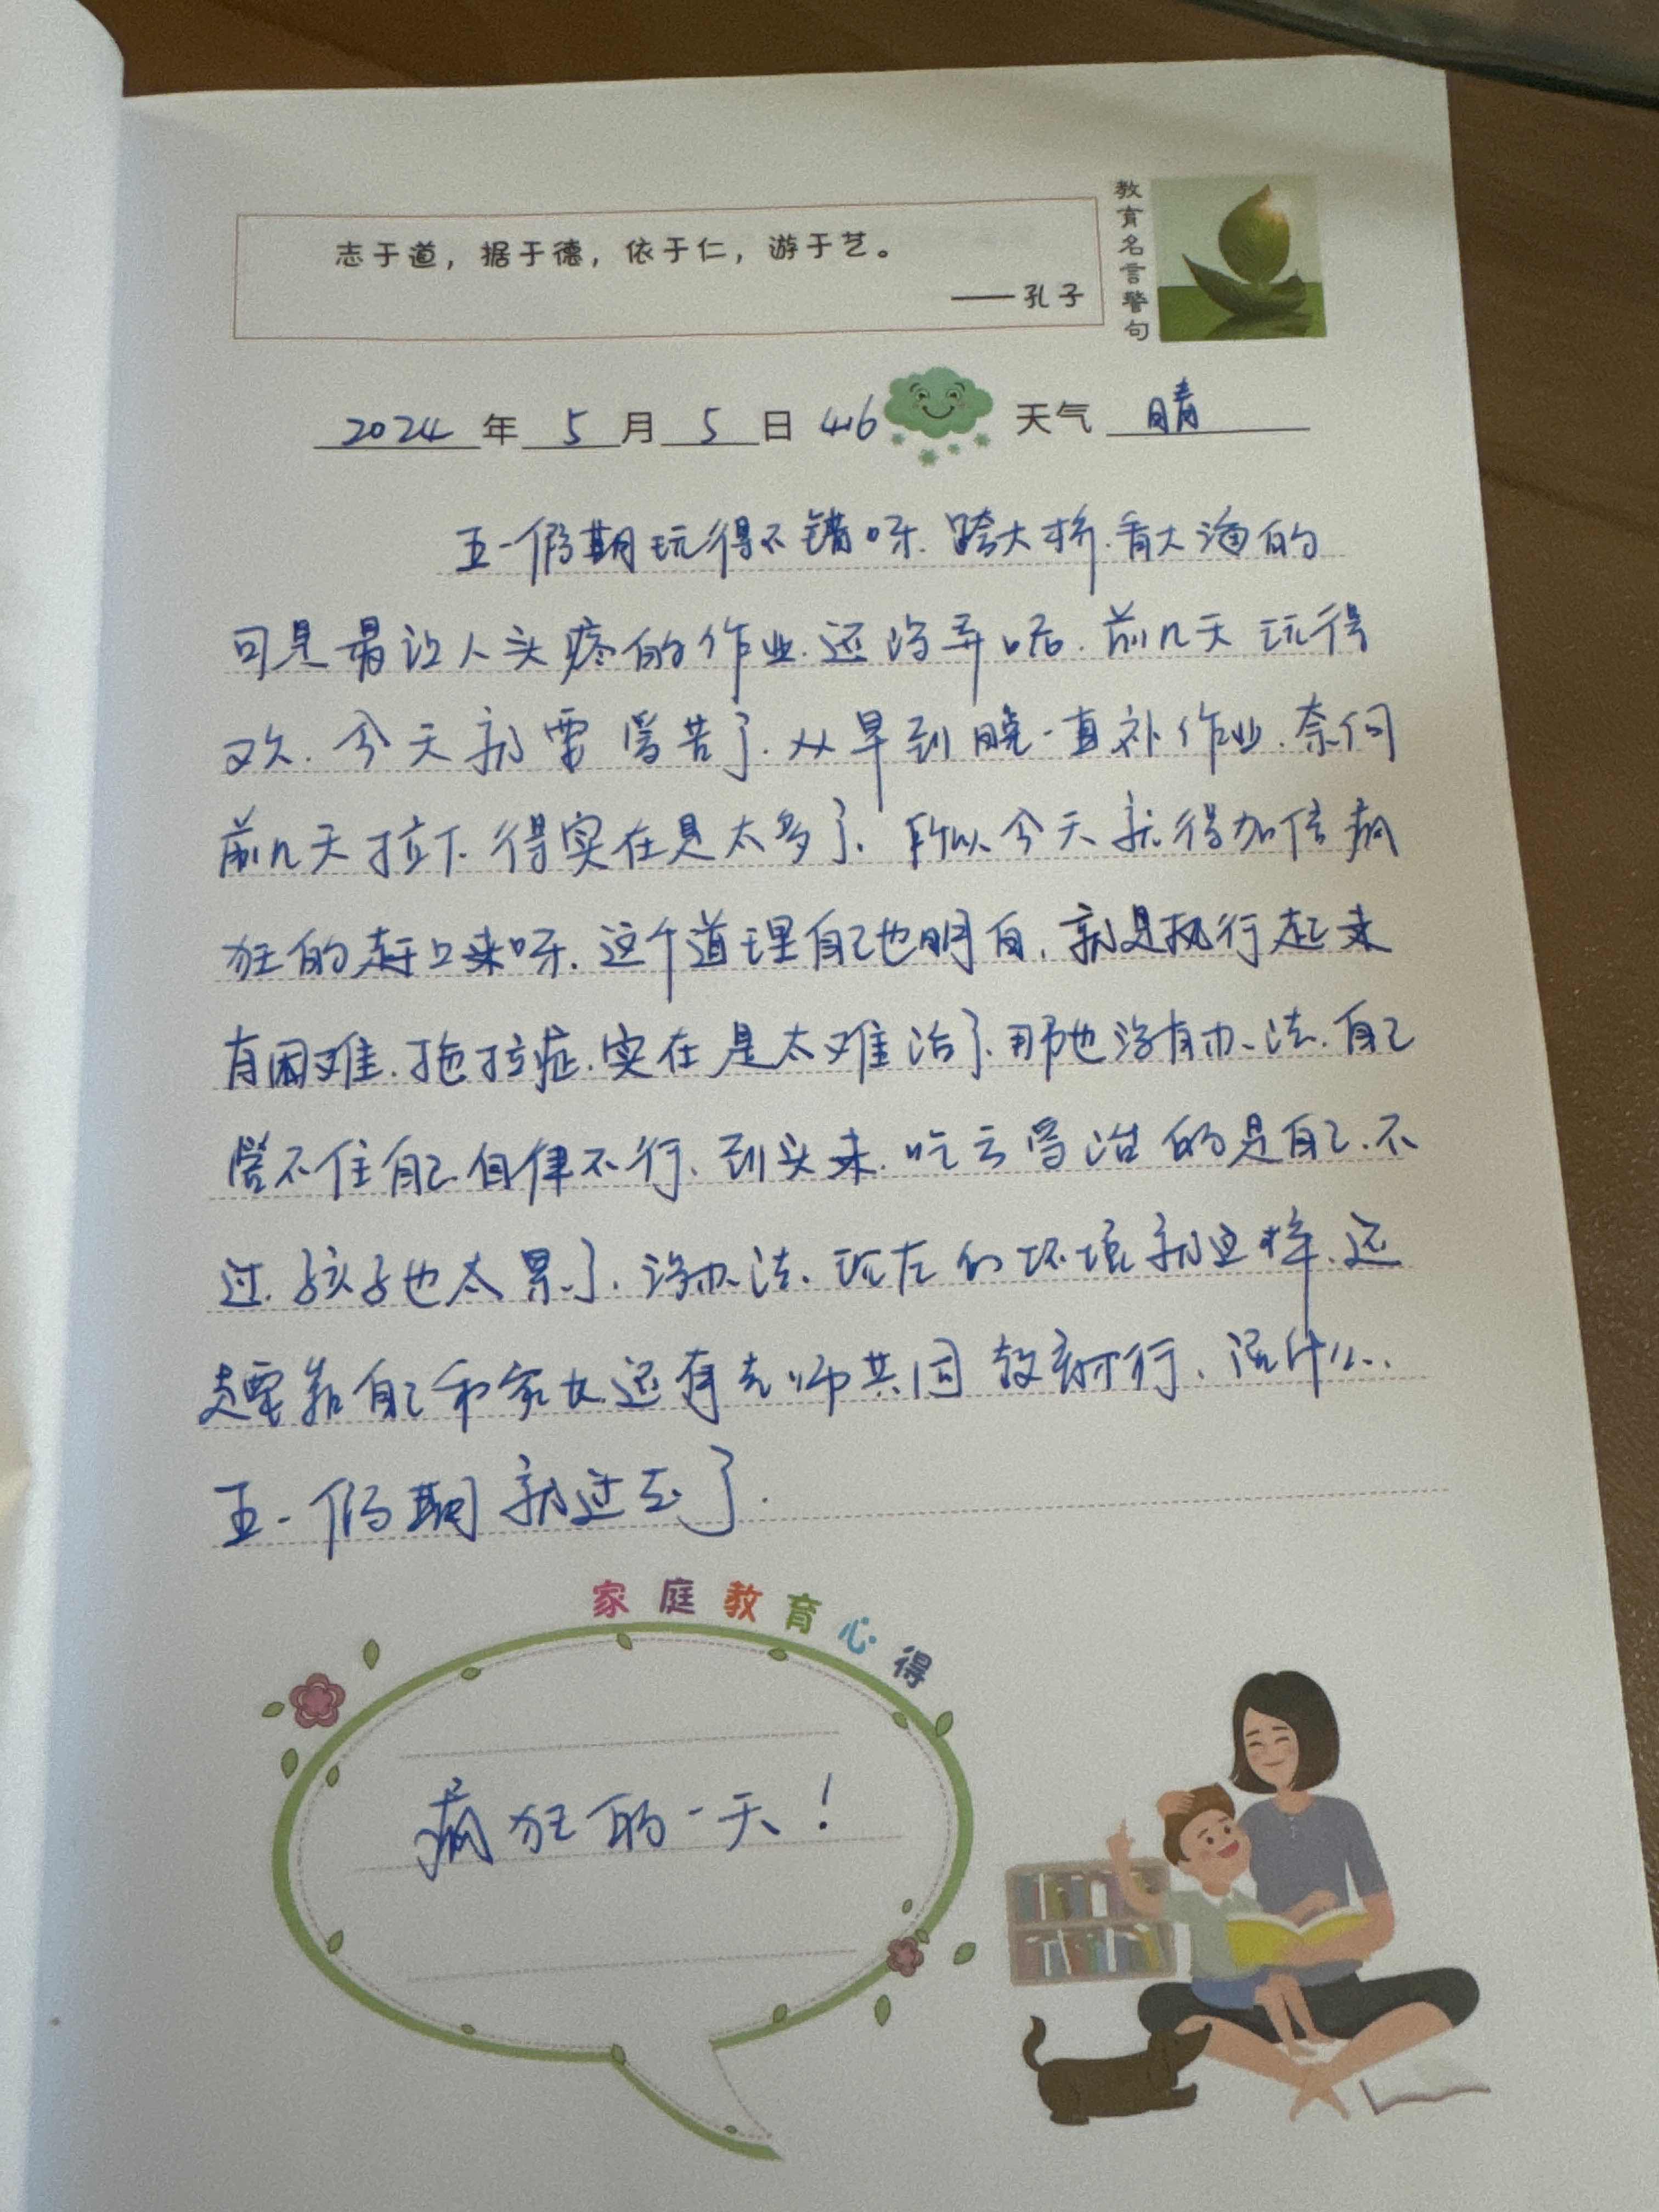 志于道，据于德，依于仁，游于艺。
——孔子
教育名言警句
2024年5月5日 416 天气 晴
五一假期玩得不错呀.跨大桥.看大海的
可是最让人头疼的作业.还没弄完.前几天玩得
欢.今天就要受苦了.从早到晚一直补作业.奈何
前几天拉下.得实在是太多了.所以今天就得加倍疯
狂的赶回来呀.这个道理自己也明白.就是执行起来
有困难.拖拉症.实在是太难治了.那也没有办法.自己
管不住自己自律不行.到头来.吃亏受治的是自己.不
过.孩子也太累了.没办法.现在的环境就这样.还
是要靠自己和家长还有老师共同努力才行.没什么..
五一假期就过去了.
家庭教育心得
疯狂的一天！